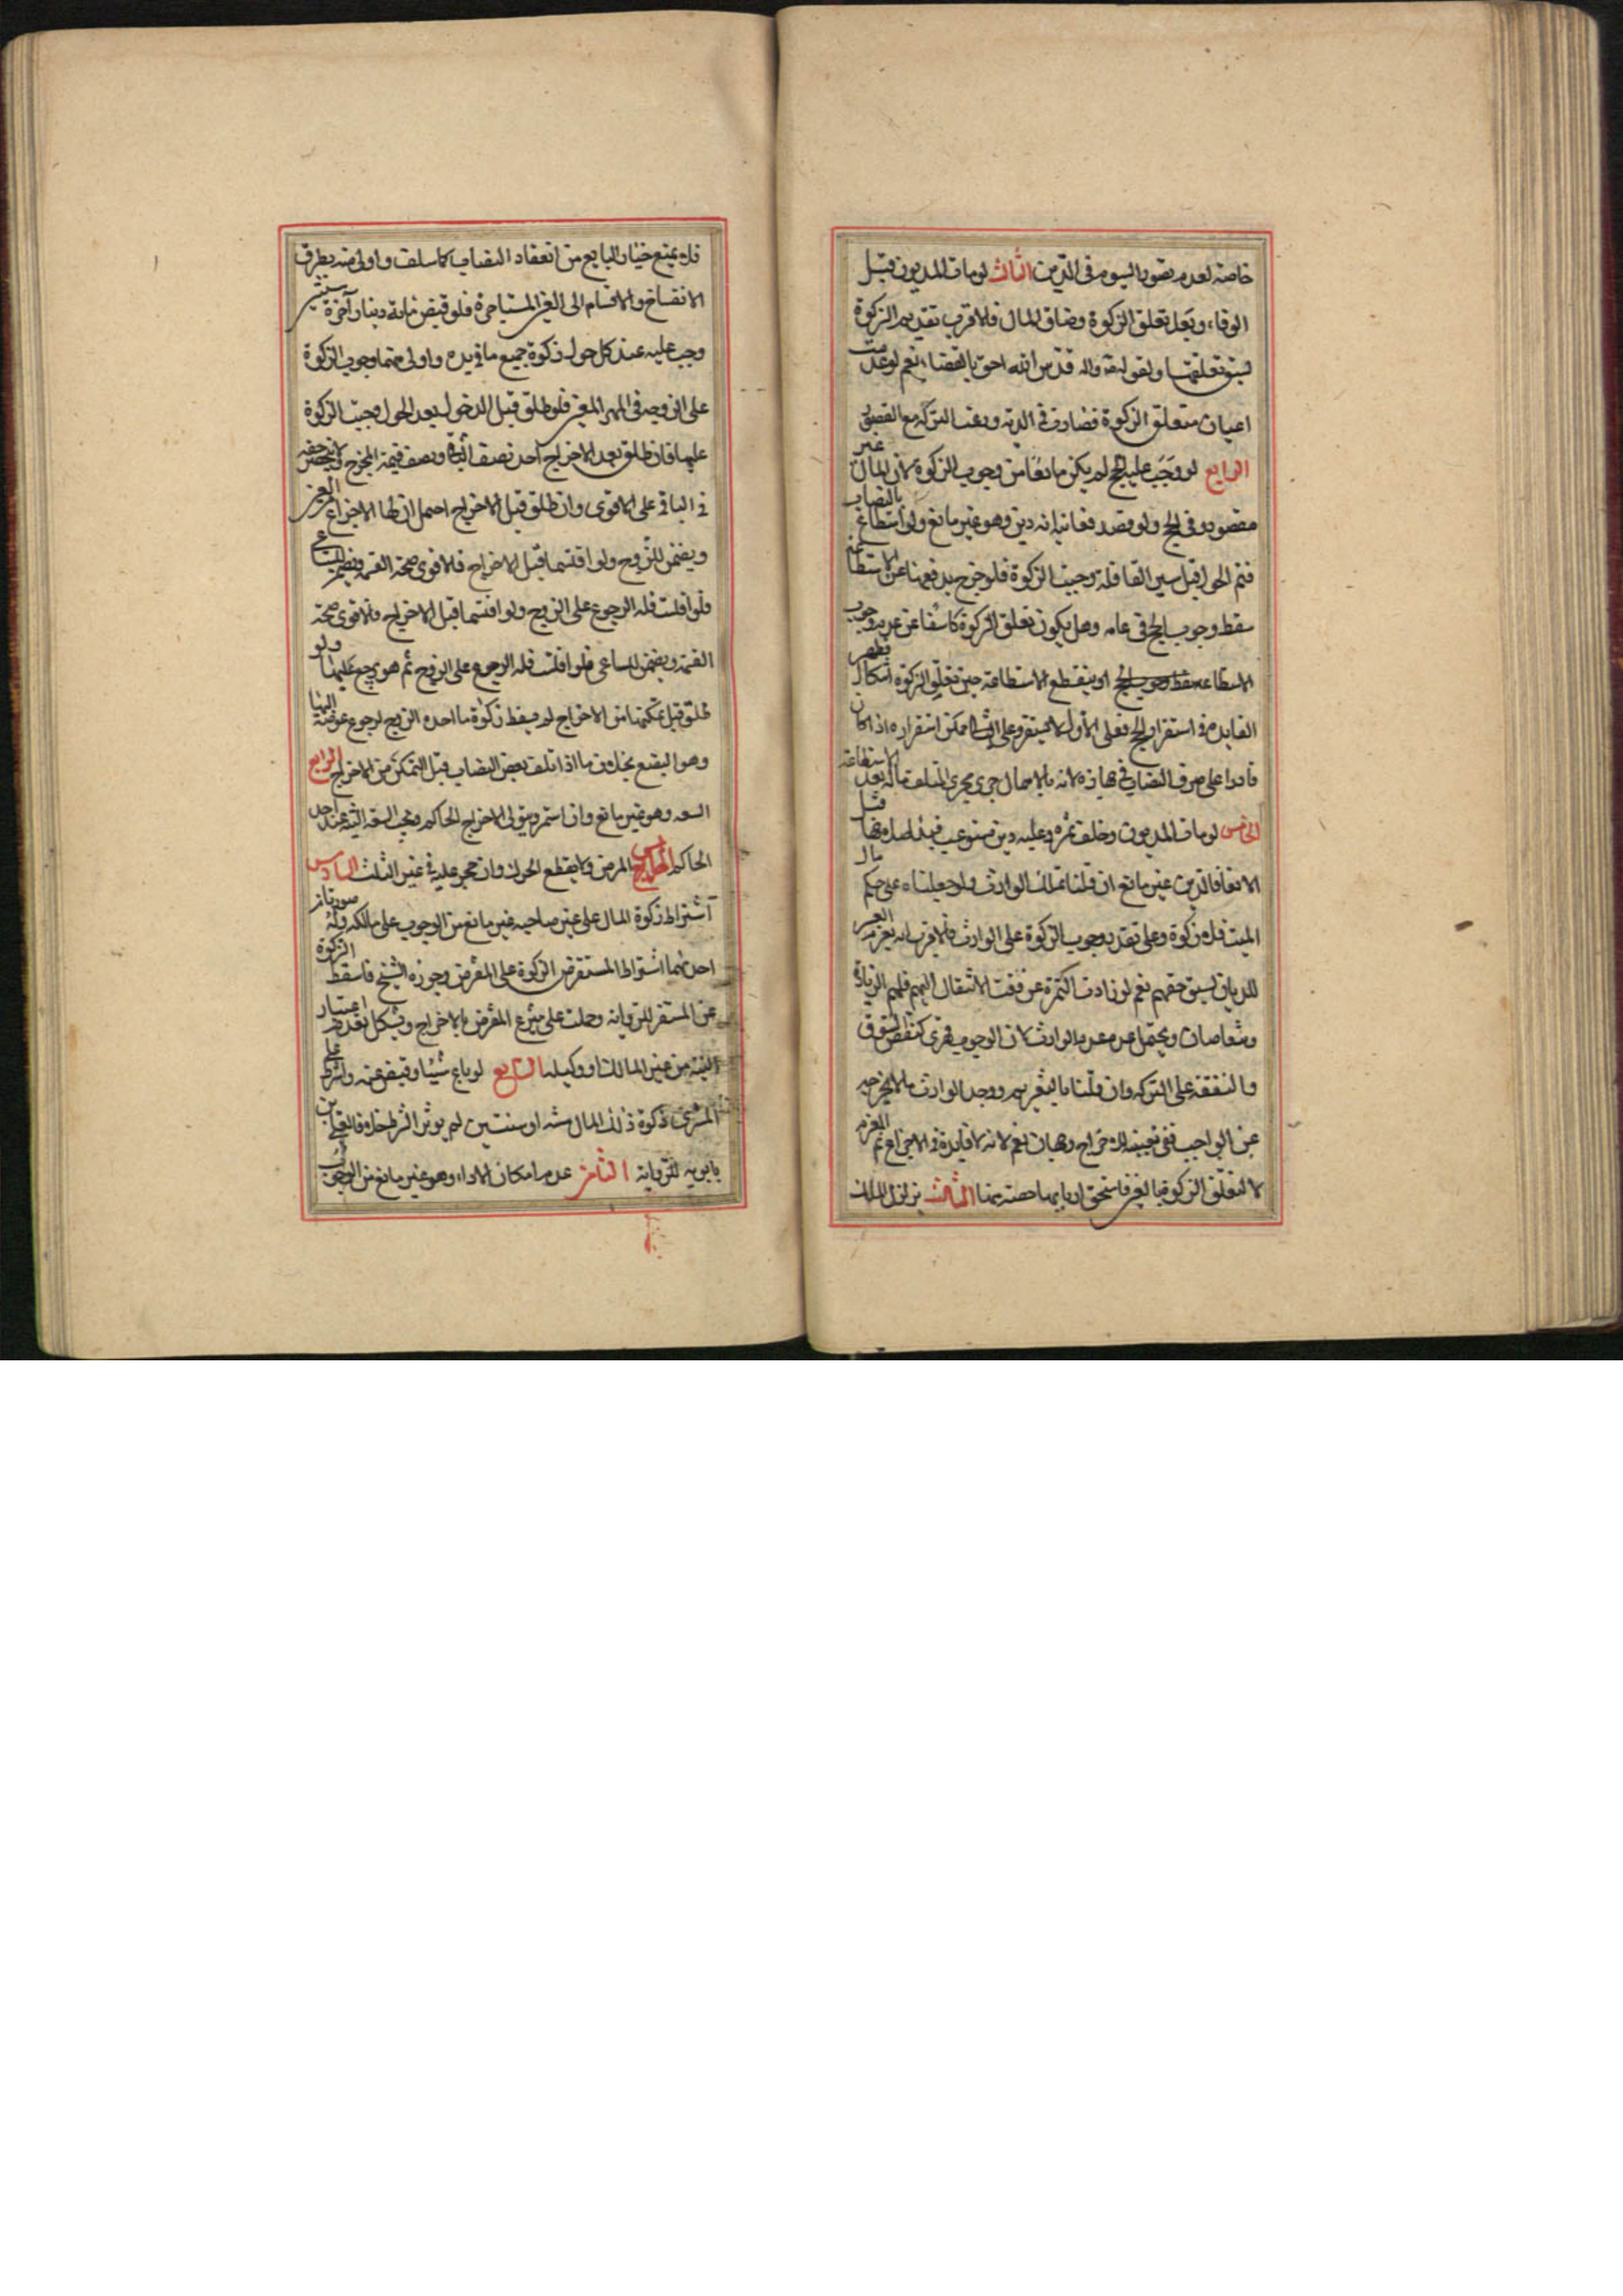 خاصة لعدم تصور السوم فى الدين الثالث لو مات المديون قبل
الوفاء وبعد تعلق الزكوة وضاق المال فالاقرب تقديم الزكوة
لسبق تعلقها ولقوله ص واله فدين الله احق بالقضاء نعم لو عدمت
اعيان متعلق الزكوة فصارت فى الذمة وزعت التركة مع القصور
الرابع لو وجب عليه الحج لم يكن مانعا من وجوب الزكوة لان المال غير
مقصود فى الحج ولو قصد فغايته انه دين وهو غير مانع ولو استطاع بالنصاب
فتم الحول قبل سير القافلة وجبت الزكوة فلو خرج بدفعها عن الاستطاعة
سقط وجوب الحج فى عامه وهل يكون تعلق الزكوة كاشفا عن عدم وجوب
الاستطاعة او ينقطع الاستطاعة حين تعلق الزكوة اشكال وتظهر
الفايدة فى استقرار الحج فعلى الاول لا يستقر وعلى الثانى يمكن استقراره اذا كان
قادرا على صرف النصاب فى جهازه لانه بالاهمال جرى مجرى المتلف ماله بعد الاستطاعة
الخامس لو مات المديون وخلف ثمرة وعليه دين مستوعب فبدا صلاحها قبل
الانعقاد فالدين غير مانع ان قلنا بتملك الوارث ولو جعلناه على حكم مال
الميت فلا زكوة وعلى تقدير وجوب الزكوة على الوارث فالاقرب انه يغرم العشر
للديان لسبق حقهم نعم لو زادت الثمرة عن وقت الانتقال اليهم فلهم الزيادة
ويتقاصان ويحتمل عدم غرم الوارث لان الوجوب قهرى كنقص السوق
والنفقة على التركة وان قلنا بالتغريم ووجد الوارث مالا يخرجه
عن الواجب ففى تعيينه للاخراج وجهان نعم لانه لا فايدة فى الاخراج ثم الغرم
لا لتعلق الزكوة بالعين فاستحق اربابها حصة منها الثالث تزلزل الملك
فلا يمنع خيار البايع من انعقاد النصاب كما سلف واولى منه بطرق
الانفساخ والاقسام الى العين المستاجرة فلو قبض مائة دينار آجرة سنتين
وجب عليه عند كل حول زكوة جميع ما فى يده واولى منهما وجوب الزكوة
على الزوجة فى المهر المعين فلو طلق قبل الدخول بعد الحول وجبت الزكوة
عليها فان طلق بعد الاخراج اخذ نصف الباقى ونصف قيمة المخرج ولا ينحصر حقه
فى الباقى على الاقوى وان طلق قبل الاخراج احتمل ان لها الاخراج من العين
ويضمن للزوج ولو اقتسما قبل الاخراج فالاقوى صحة القسمة ويضمن للساعى
فلو افلست فله الرجوع على الزوج ولو اقتسما قبل الاخراج فالاقوى صحة
القسمة ويضمن للساعى فلو افلست فله الرجوع على الزوج ثم هو يرجع عليها ولو
طلق قبل تمكنها من الاخراج لم يسقط زكوة ما اخذه الزوج لرجوع عوضه اليها
وهو البضع بخلاف ما اذا تلف بعض النصاب قبل التمكن من الاخراج الرابع
السفه وهو غير مانع وان استمر ويتولى الاخراج الحاكم ويجب النية عند اخذ
الحاكم الخامس المرض ولا يقطع الحول وان حجر عليه فى غير الثلث السادس
اشتراط زكوة المال على غير صاحبه غير مانع من الوجوب على مالكه وله صورتان
احدهما اشتراط المستقرض الزكوة على المقرض وجوزه الشيخ فاسقط الزكوة
عن المستقرض للرواية وحملت على تبرع المقرض بالاخراج ويشكل بعدم اعتبار
النية من غير المالك او وكيله السابع لو باع شيئا وقبض ثمنه واشترط على
المشترى زكوة ذلك المال سنة او سنتين لم يوثر الشرط خلافا لعلى بن
بابويه للرواية الثامن عدم امكان الاداء وهو غير مانع من الوجوب